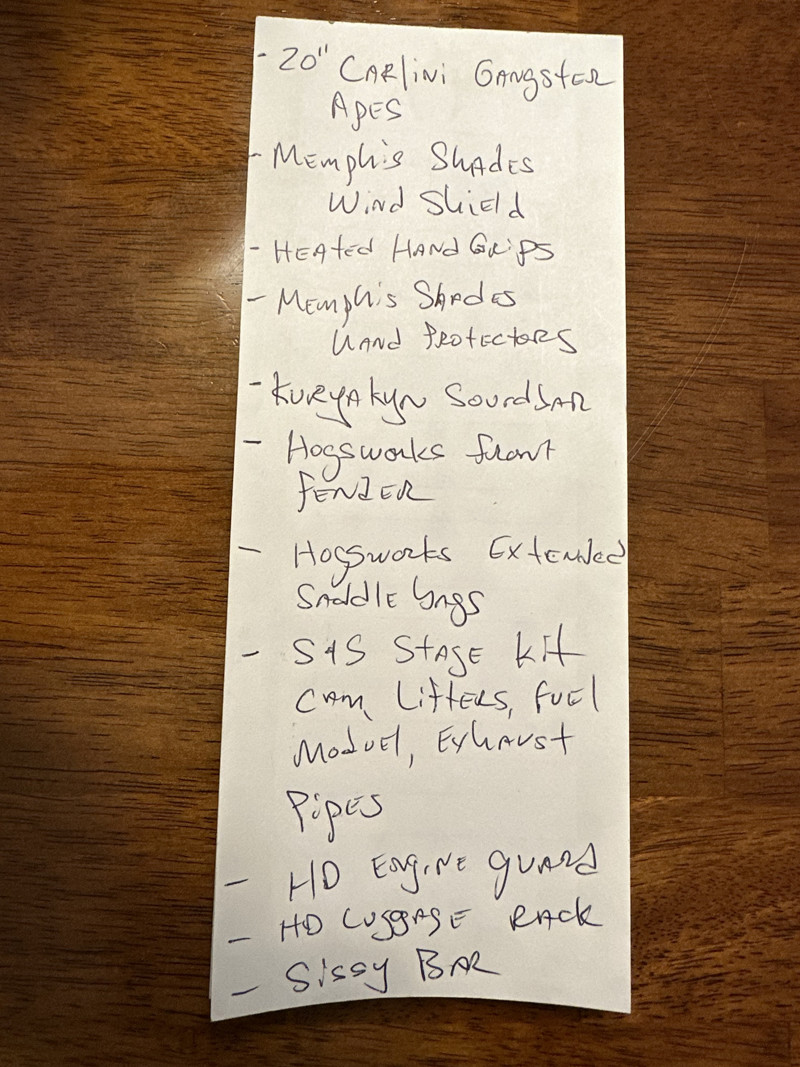 - 20" Carlini Gangster
Apes
- Memphis Shades
Wind Shield
- Heated Hand Grips
- Memphis Shades
Hand Protectors
- Kuryakyn Soundbar
- Hogsworks front
fender
- Hogsworks Extended
Saddle bags
- S&S Stage kit
Cam, Lifters, Fuel
Moduel, Exhaust
Pipes
- HD Engine guard
- HD Luggage Rack
- Sissy Bar